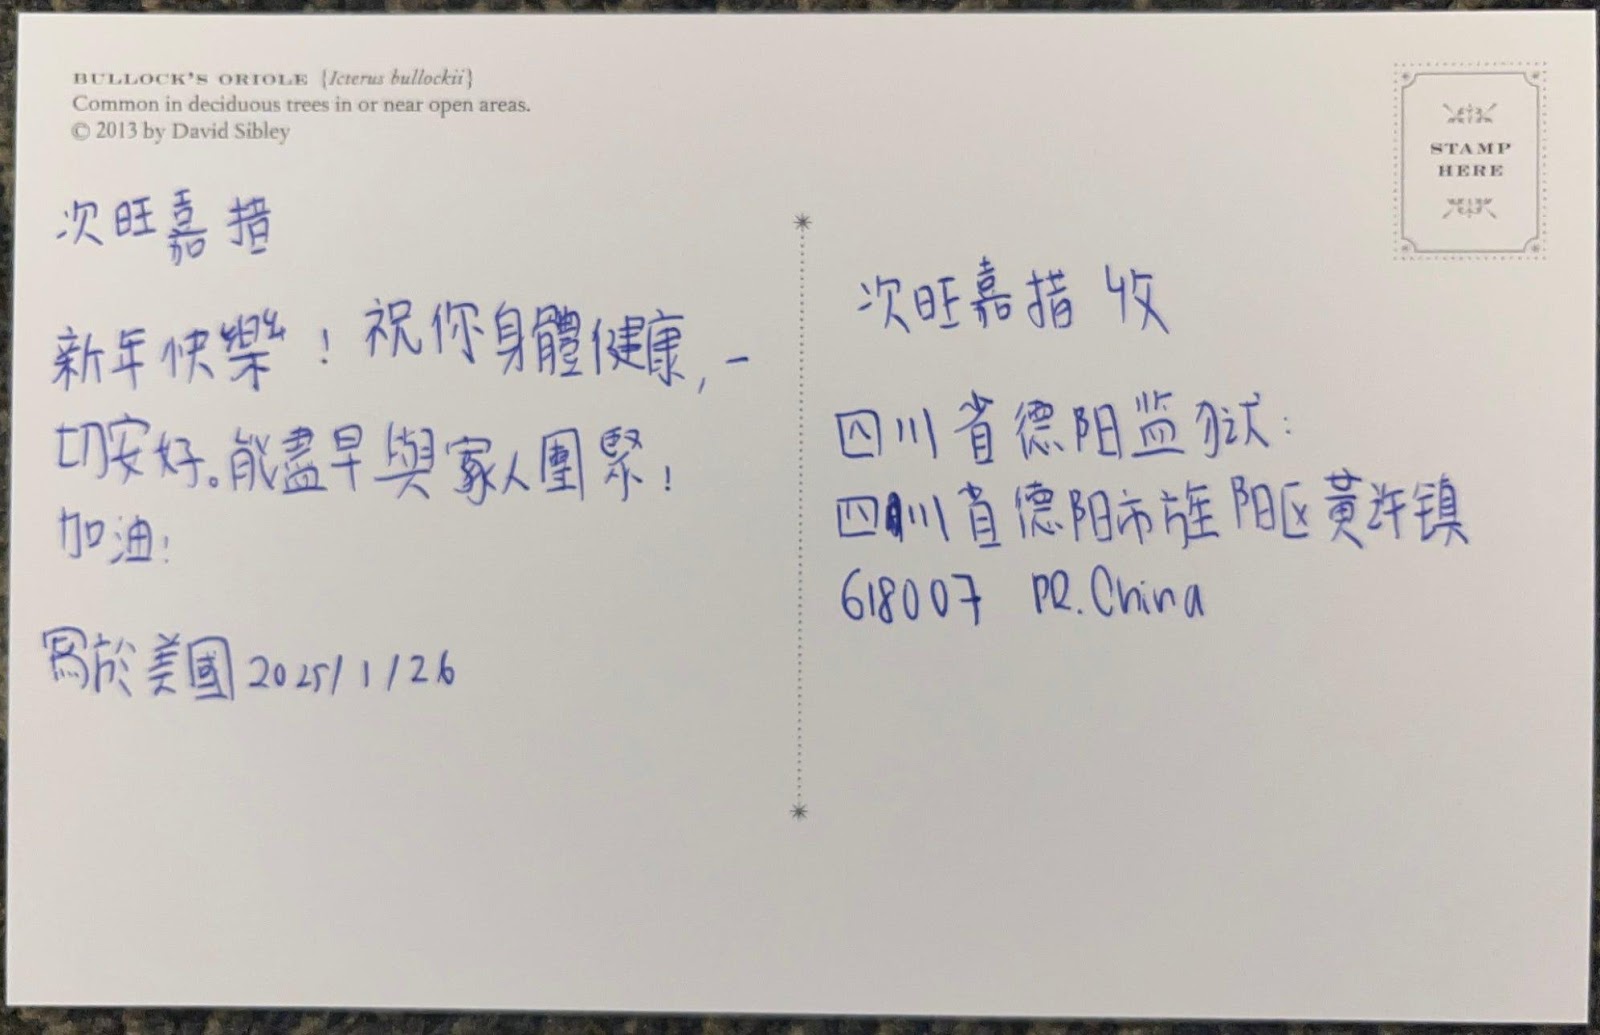 BULLOCK'S ORIOLE {Icterus bullockii}
Common in deciduous trees in or near open areas.
© 2013 by David Sibley
次旺嘉措
新年快樂！祝你身體健康，一
切安好。能盡早與家人團緊！
加油！
寫於美國 2025/1/26
STAMP
HERE
次旺嘉措 收
四川省德阳监狱：
四川省德阳市旌阳区黄许镇
618007 PR. China